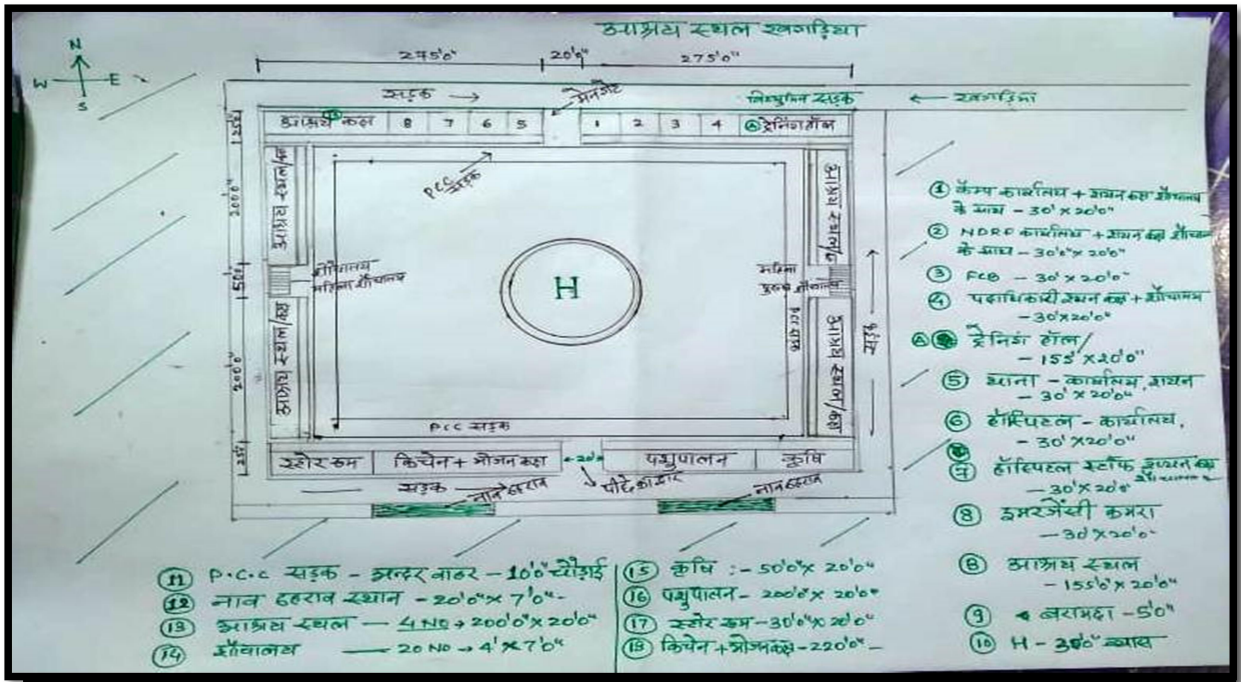 आश्रय स्थल खगड़िया
N
W E
S
275'0" 20'0" 275'0"
सड़क → मेनगेट सड़क ← खगड़िया
25' आश्रय कक्ष B 8 7 6 5 1 2 3 4 A ट्रेनिंग हॉल
PCC सड़क
200'0" आश्रय स्थल/कक्ष
आश्रय स्थल/
50' शौचालय
महिला शौचालय
H
महिला
पुरुष शौचालय
200'0" आश्रय स्थल/कक्ष
PCC सड़क
आश्रय स्थल/कक्ष
सड़क
PCC सड़क
25' स्टोर रूम किचेन + भोजन कक्ष 20' पशुपालन कृषि
सड़क नाव ठहराव पीछे का द्वार नाव ठहराव
① कैम्प कार्यालय + शयन कक्ष शौचालय
के साथ - 30' X 20'0"
② NDRF कार्यालय + शयन कक्ष शौचालय
के साथ - 30'0" X 20'0"
③ FCB - 30' X 20'0"
④ पदाधिकारी शयन कक्ष + शौचालय
- 30' X 20'0"
A ट्रेनिंग हॉल/
- 155' X 20'0"
⑤ थाना - कार्यालय, शयन
- 30' X 20'0"
⑥ हॉस्पिटल - कार्यालय,
- 30' X 20'0"
⑦ हॉस्पिटल स्टॉफ शयन कक्ष
शौचालय
- 30' X 20'0"
⑧ इमरजेंसी कमरा
- 30' X 20'0"
B आश्रय स्थल
- 155'0" X 20'0"
⑨ बरामदा - 5'0"
⑩ H - व्यास
⑪ P.C.C सड़क - अन्दर बाहर - 10'0" चौड़ाई
⑫ नाव ठहराव स्थान - 20'0" X 7'0" -
⑬ आश्रय स्थल — 4 NO → 200'0" X 20'0"
⑭ शौचालय — 20 NO → 4' X 7'0"
⑮ कृषि :- 50'0" X 20'0"
⑯ पशुपालन - 200'0" X 20'0"
⑰ स्टोर रूम - 30'0" X 20'0"
⑱ किचेन + भोजन कक्ष - 220'0" -